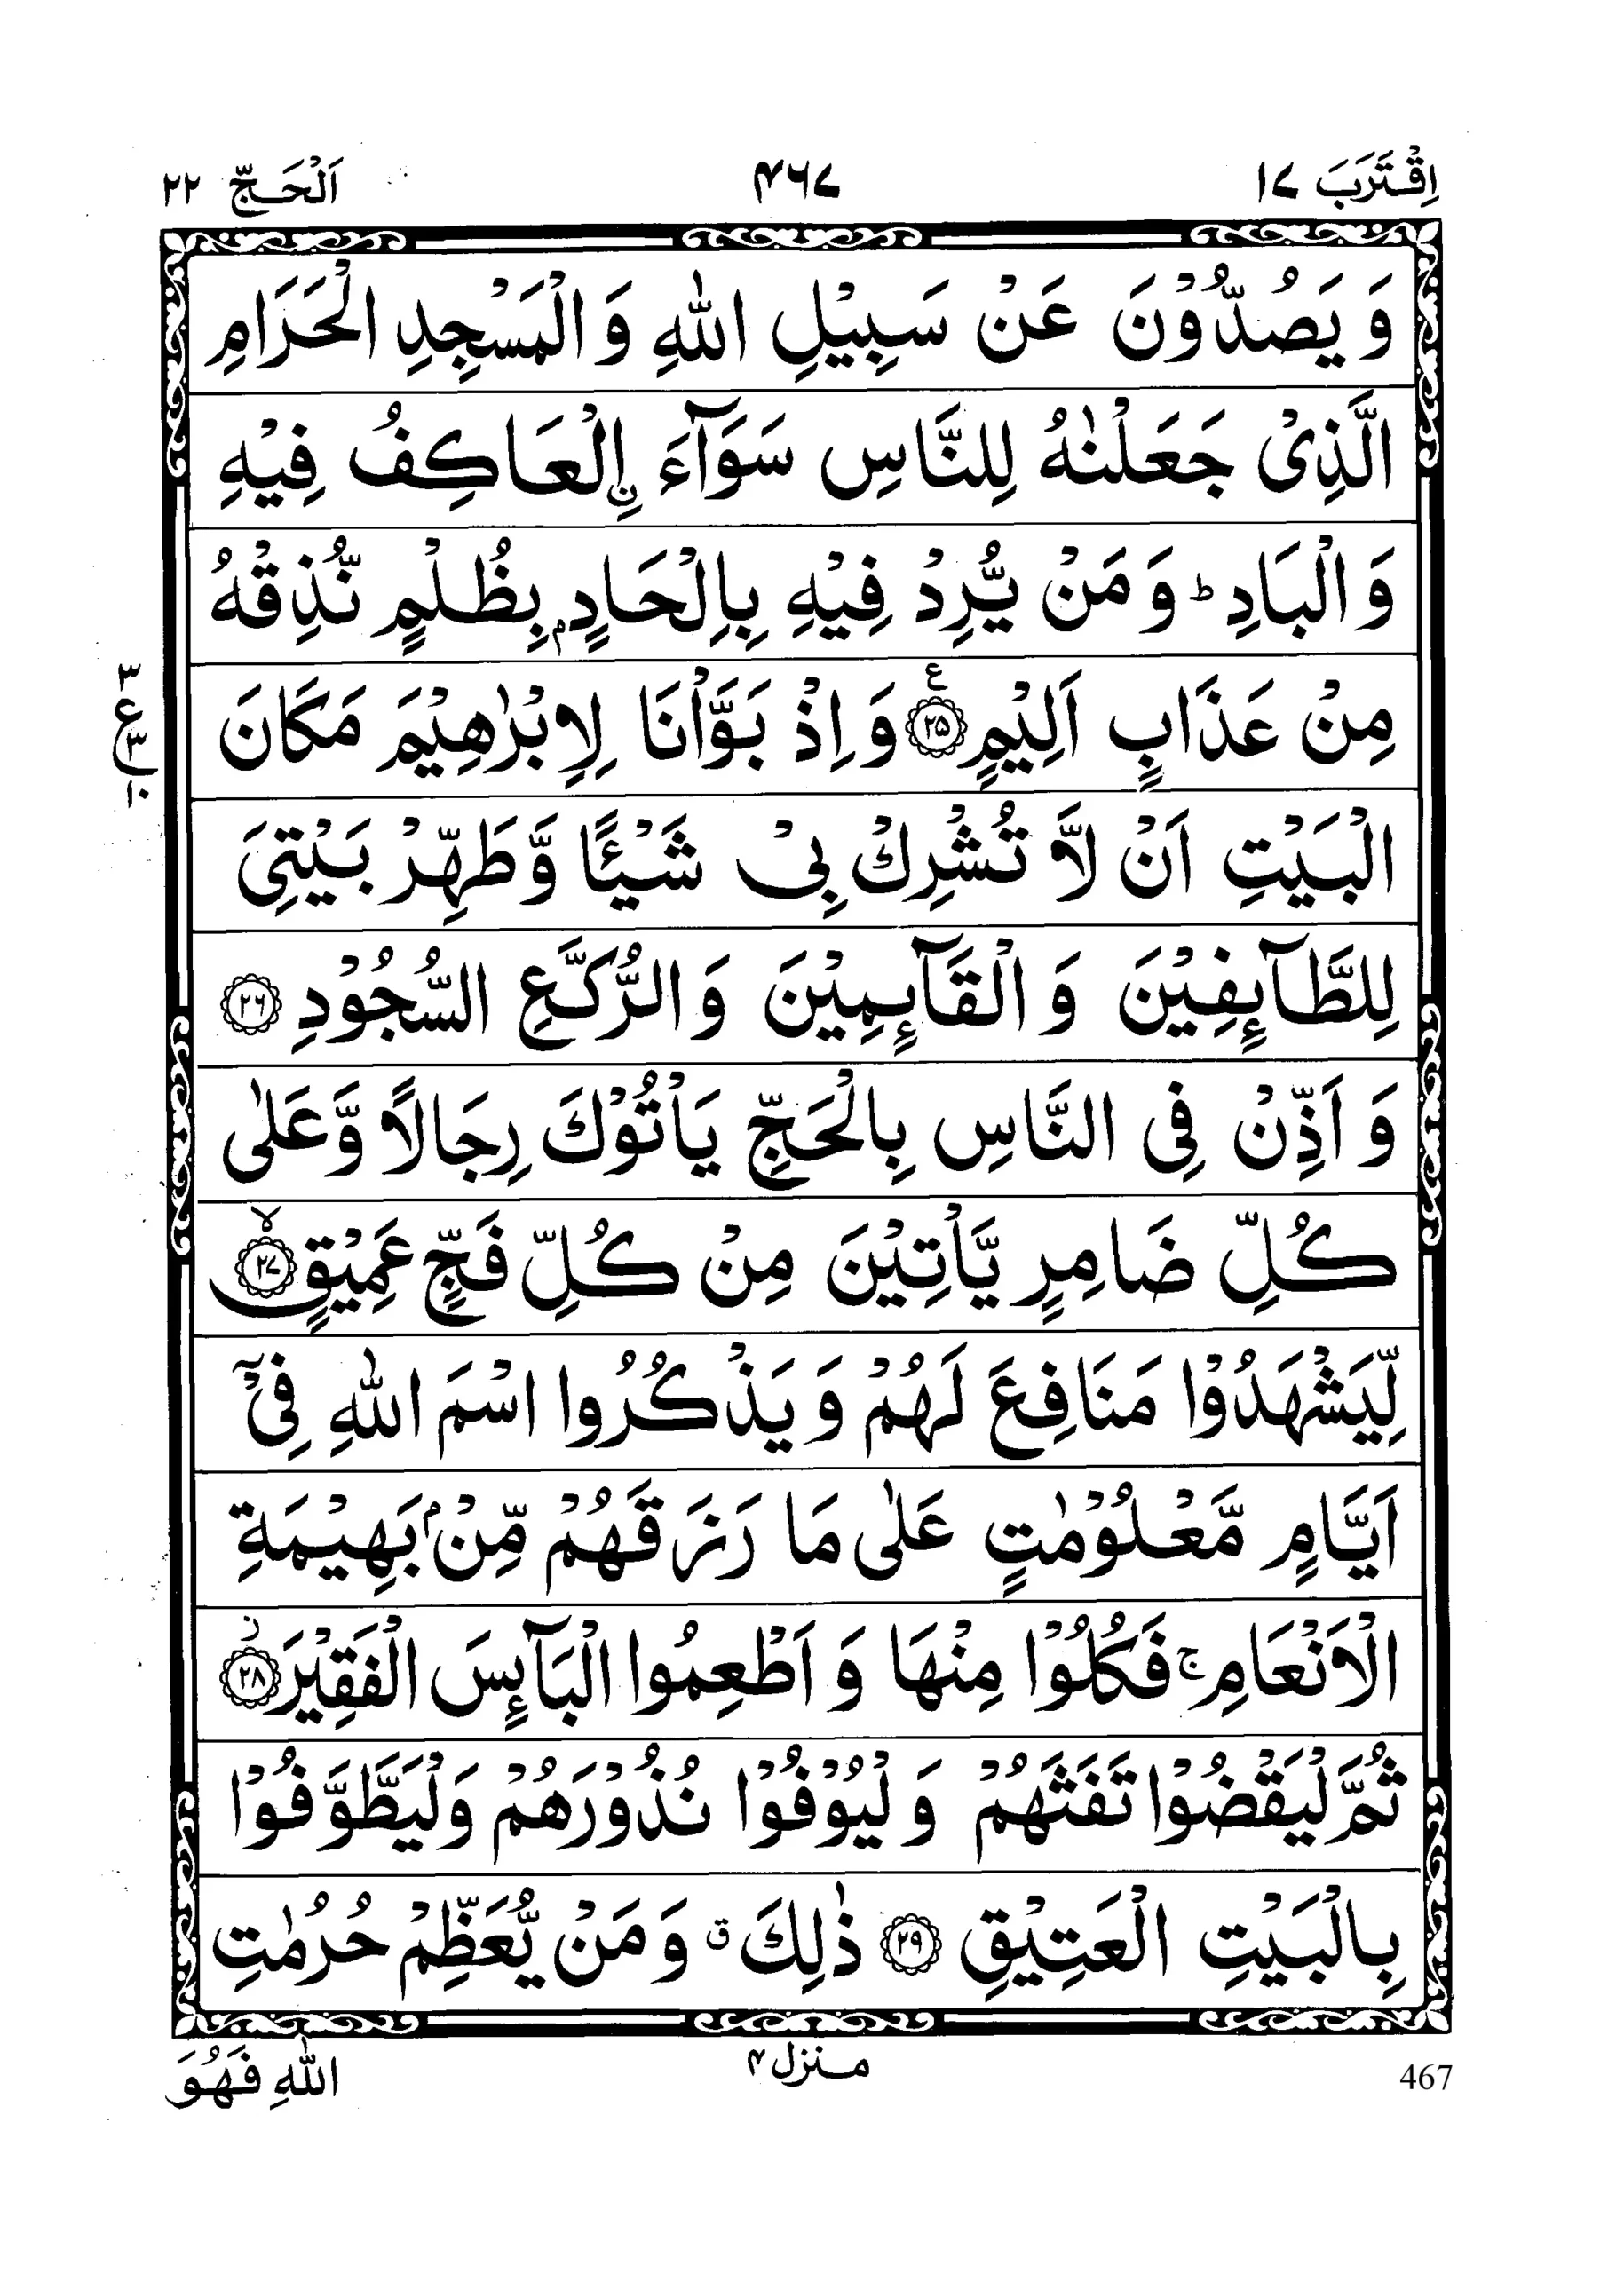 اِقْتَرَبَ ١٧ ٤٦٧ اَلْحَجّ ٢٢
وَ يَصُدُّوْنَ عَنْ سَبِيْلِ اللّٰهِ وَالْمَسْجِدِ الْحَرَامِ
الَّذِیْ جَعَلْنٰهُ لِلنَّاسِ سَوَآءَ اِ۟لْعَاكِفُ فِیْهِ
وَالْبَادِ ؕ وَمَنْ يُّرِدْ فِيْهِ بِاِلْحَادٍۭ بِظُلْمٍ نُّذِقْهُ
مِنْ عَذَابٍ اَلِيْمٍ ۟ع ٢٥ وَاِذْ بَوَّاْنَا لِاِبْرٰهِيْمَ مَكَانَ
٣
ع ٣
١٠
الْبَيْتِ اَنْ لَّا تُشْرِكْ بِیْ شَيْـًٔا وَّطَهِّرْ بَيْتِیَ
لِلطَّآىِٕفِيْنَ وَ الْقَآىِٕمِيْنَ وَالرُّكَّعِ السُّجُوْدِ ٢٦
وَ اَذِّنْ فِی النَّاسِ بِالْحَجِّ يَاْتُوْكَ رِجَالًا وَّعَلٰی
كُلِّ ضَامِرٍ يَّاْتِيْنَ مِنْ كُلِّ فَجٍّ عَمِيْقٍ ۙ ٢٧
لِّيَشْهَدُوْا مَنَافِعَ لَهُمْ وَيَذْكُرُوا اسْمَ اللّٰهِ فِیْۤ
اَيَّامٍ مَّعْلُوْمٰتٍ عَلٰی مَا رَزَقَهُمْ مِّنْۢ بَهِيْمَةِ
الْاَنْعَامِ ۚ فَكُلُوْا مِنْهَا وَاَطْعِمُوا الْبَآىِٕسَ الْفَقِيْرَ ؗ ٢٨
ثُمَّ لْيَقْضُوْا تَفَثَهُمْ وَلْيُوْفُوْا نُذُوْرَهُمْ وَلْيَطَّوَّفُوْا
بِالْبَيْتِ الْعَتِيْقِ ٢٩ ذٰلِكَ ۗ ق وَمَنْ يُّعَظِّمْ حُرُمٰتِ
467 منزل ٤ اللّٰهِ فَهُوَ